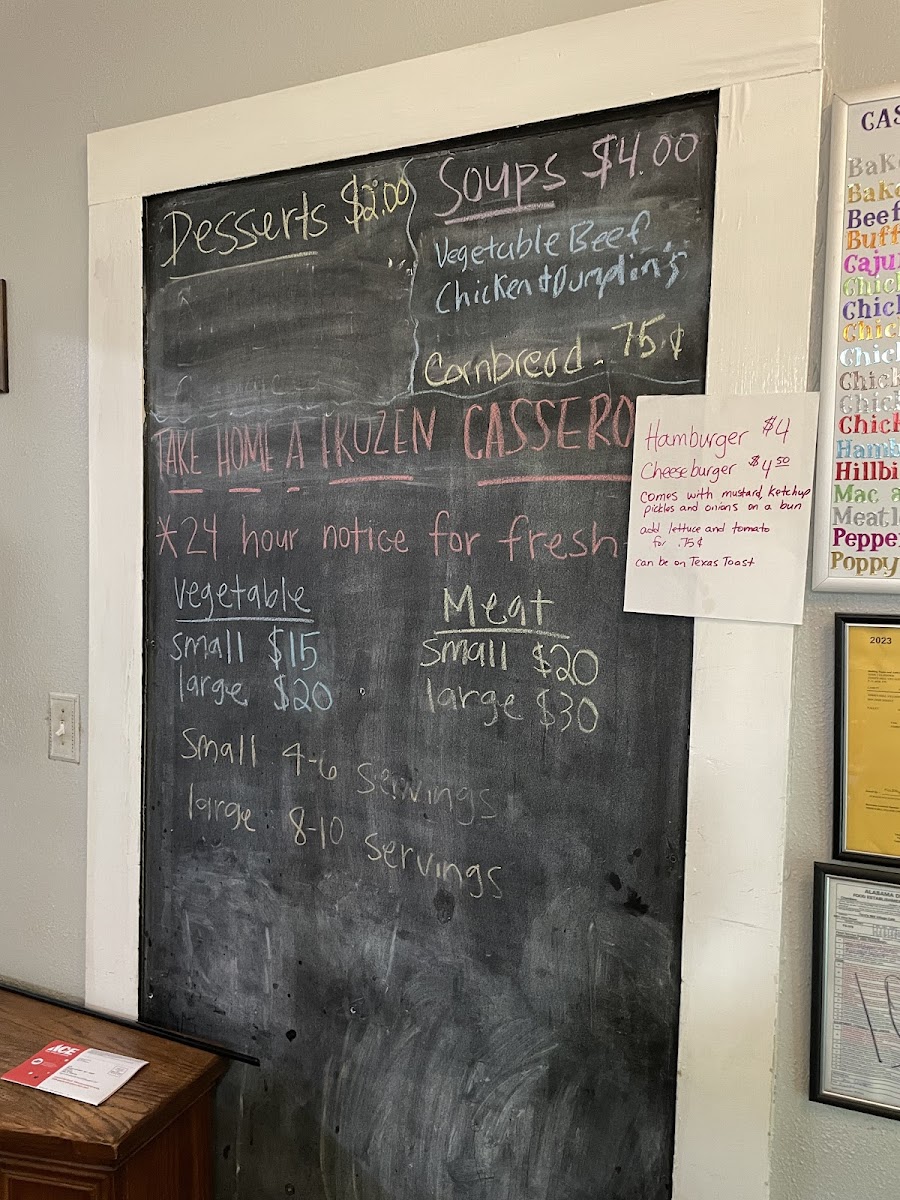 Desserts $2.00
Soups $4.00
Vegetable Beef
Chicken + Dumplin's
Cornbread - 75¢
TAKE HOME A FROZEN CASSERO
*24 hour notice for fresh
Vegetable
small $15
large $20
Meat
small $20
large $30
Small 4-6 servings
large 8-10 servings
Hamburger $4
Cheeseburger $4 50
comes with mustard, ketchup
pickles and onions on a bun
add lettuce and tomato
for .75¢
can be on Texas Toast
CAS
Bake
Bake
Beef
Buff
Caju
Chick
Chic
Chic
Chic
Chick
Chick
Chick
Hamb
Hillbi
Mac a
Meatl
Peppe
Poppy
2023
ALABAMA D
FOOD ESTABLISHMEN
ACE